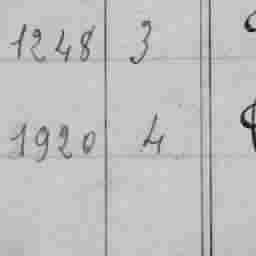 1248 3
1920 4